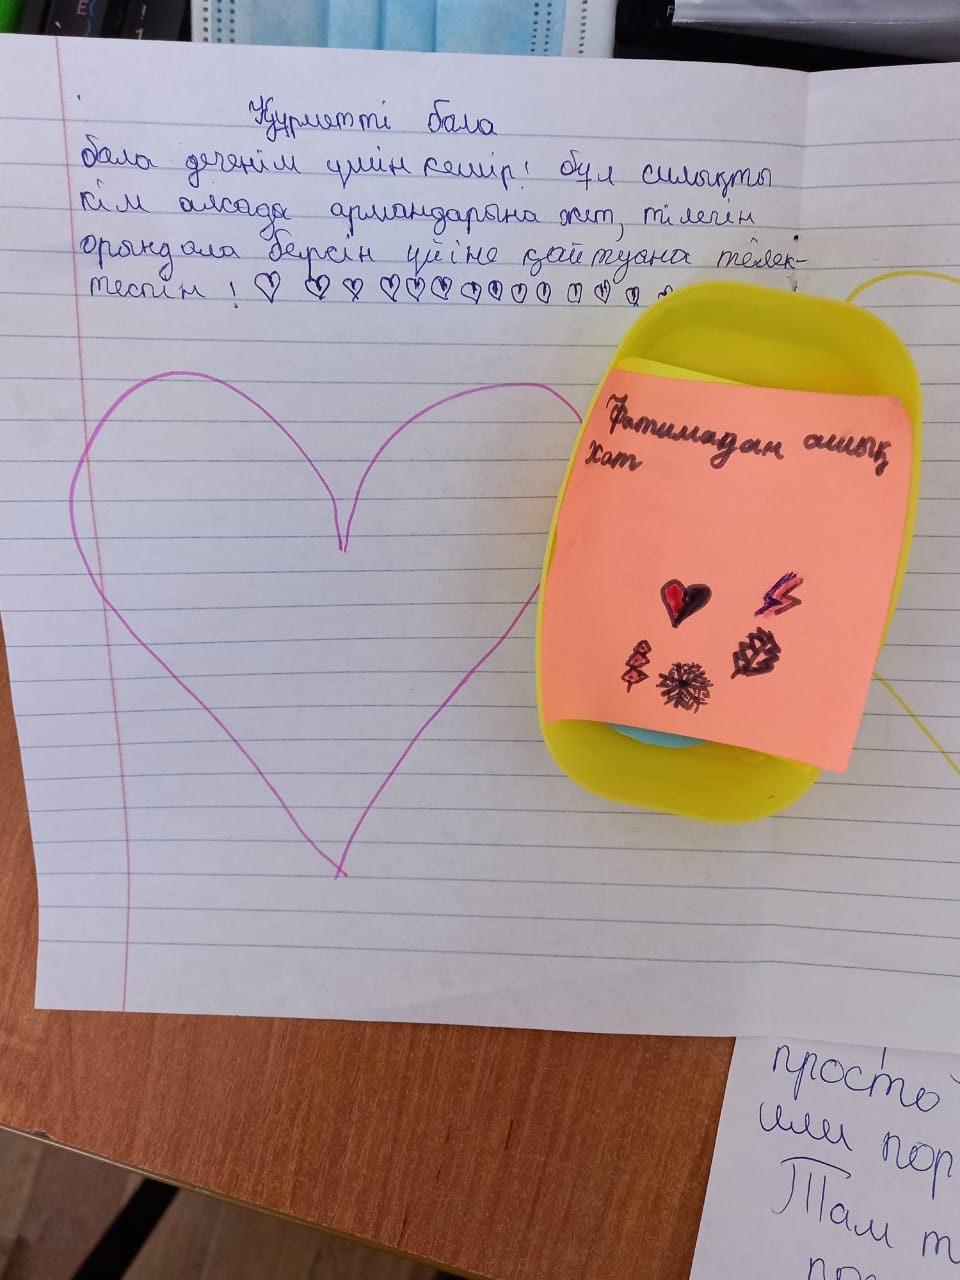 Құрметті бала
бала дегенім үшін кешір! бұл сыйлықты
кім алсада армандарына жет, тілегің
орындала берсін үйіңе қайтуыңа тілек-
теспін!
Фатимадан ашық
хат
просто
или пор
Там т